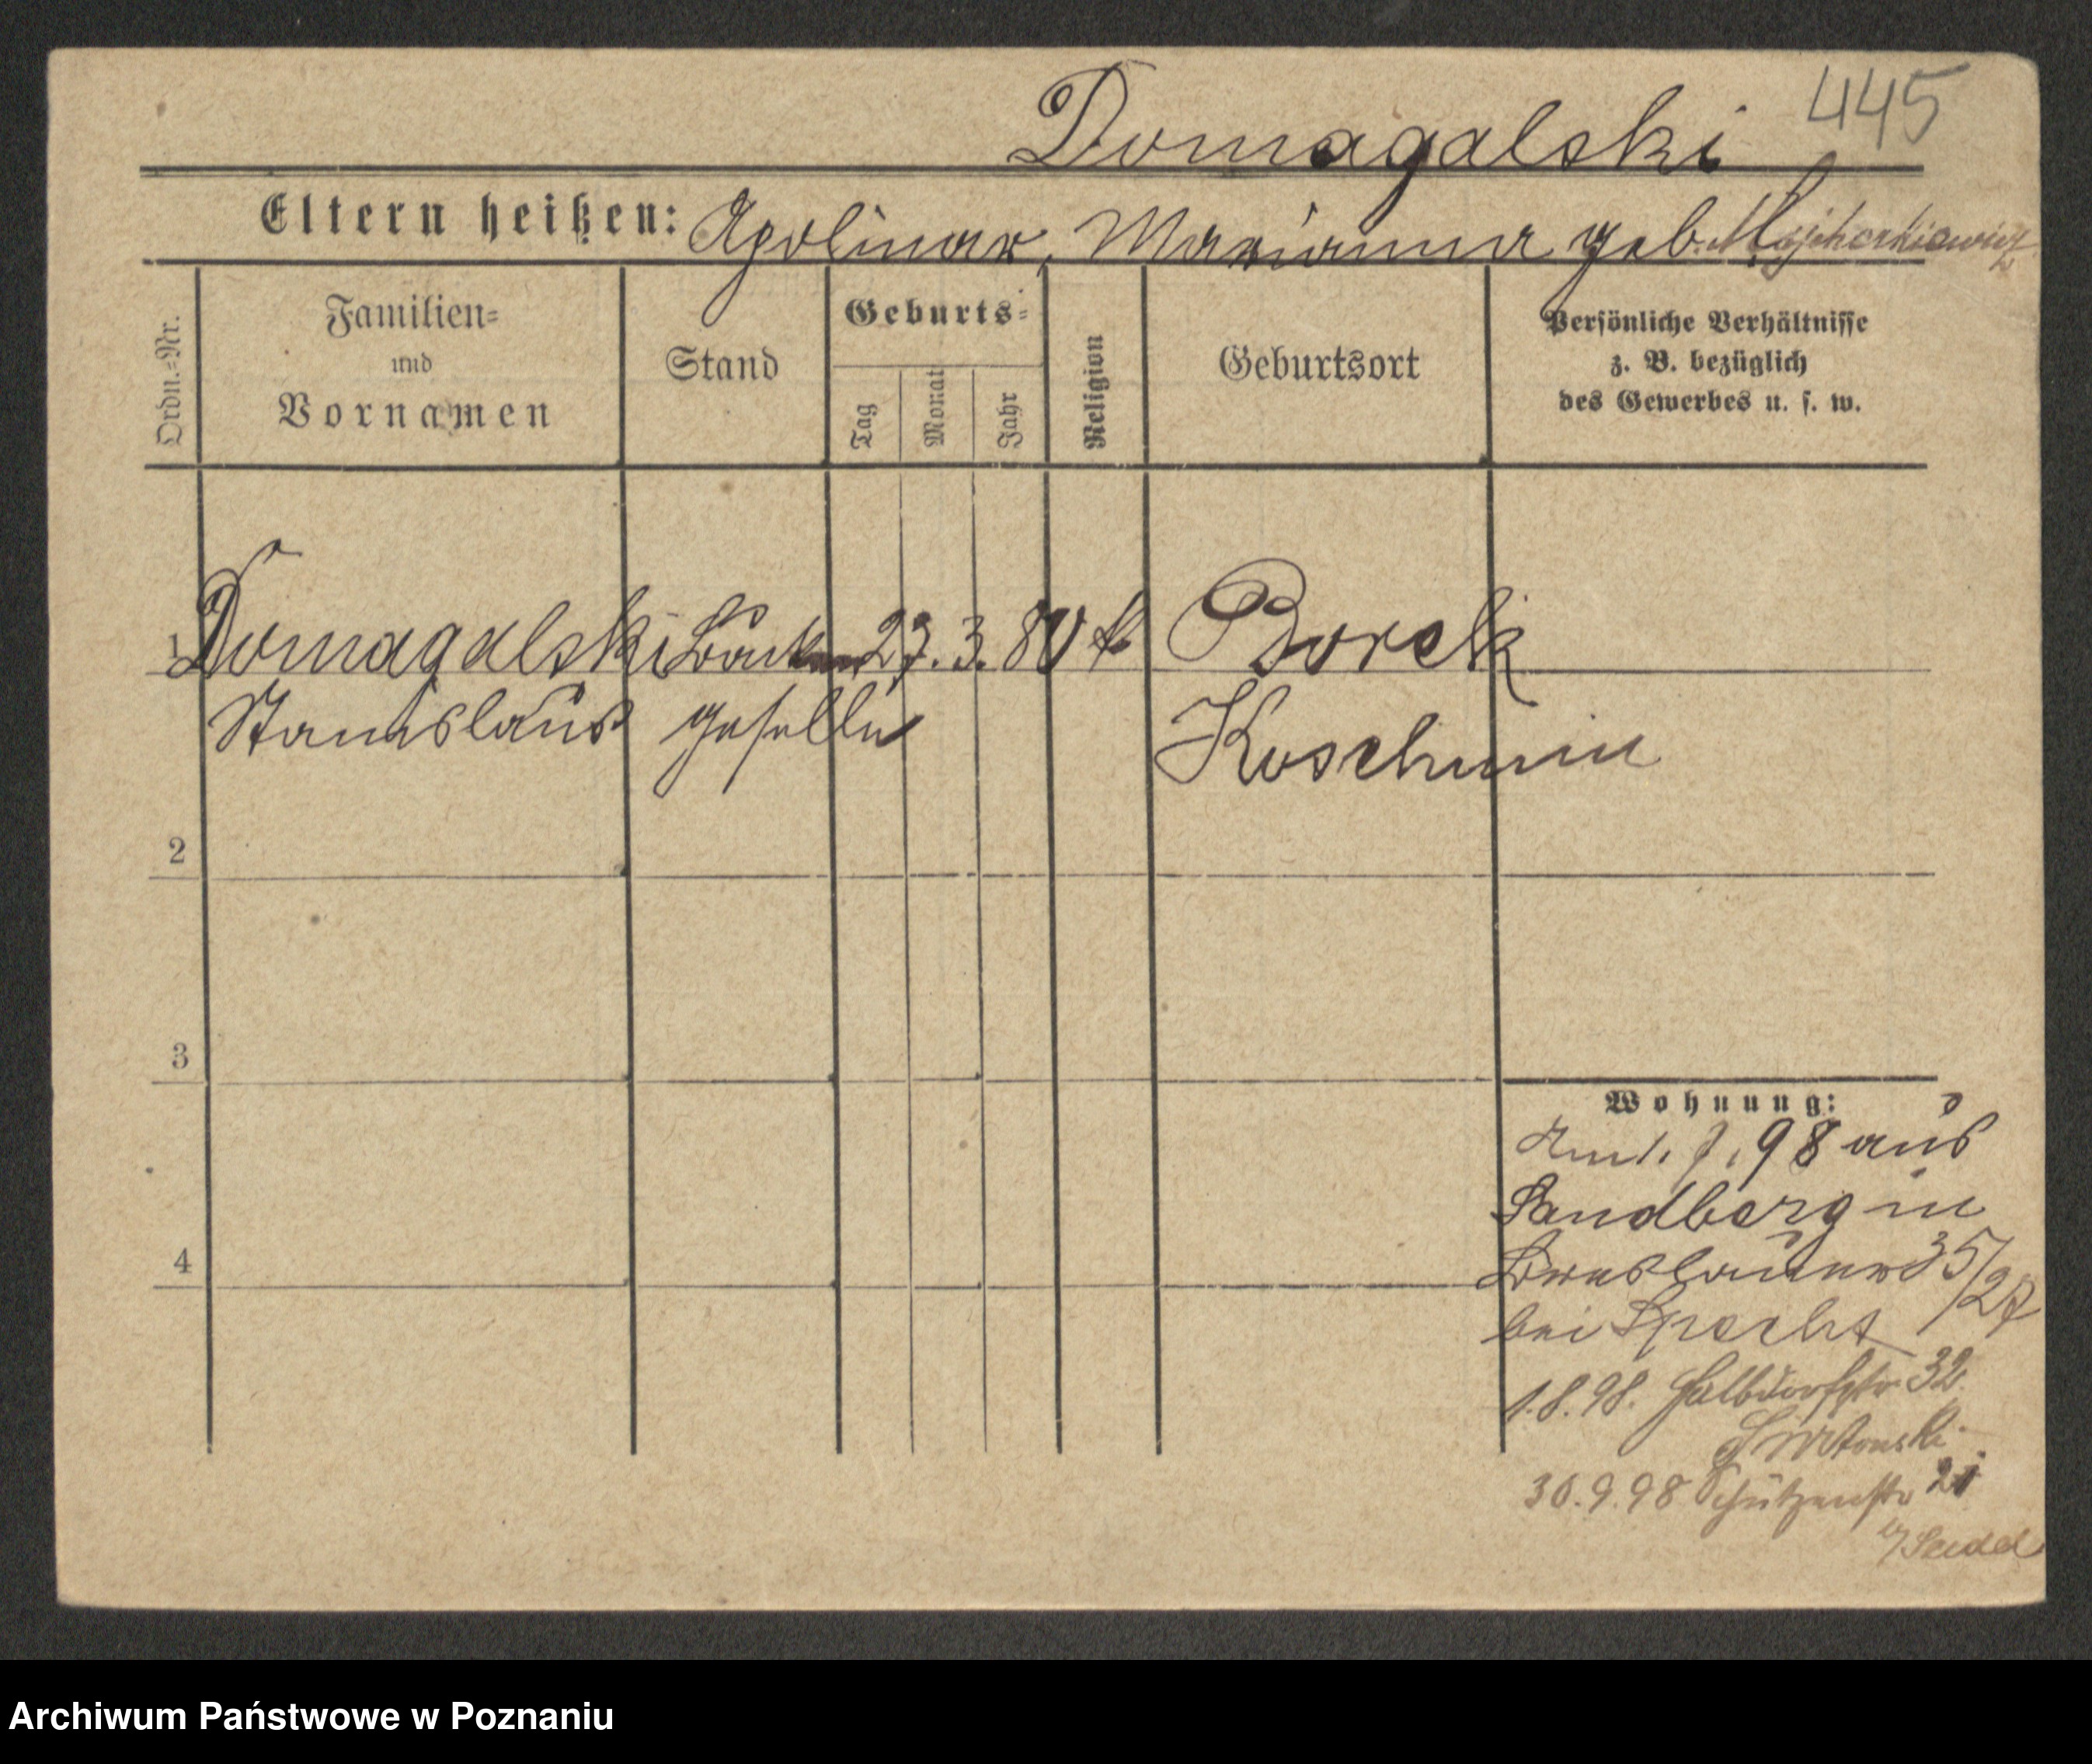 445
Domagalski
Eltern heißen: Apolinar, Marianna geb.
Ordn.=Nr.
Familien=
und
Vornamen
Stand
Geburts=
Tag
Monat
Jahr
Religion
Geburtsort
Persönliche Verhältnisse
z. B. bezüglich
des Gewerbes u. s. w.
1 Domagalski Bäcker 27. 3. 80 k Borek
Stanislaus geselle Koschmin
2
3
4
Wohnung:
98 aus
Sandberg in
Breslauer 35/27
bei Specht
1.8.98. Halbdorfstr 32
30.9.98 Schützenstr 21
b/ Seidel
Archiwum Państwowe w Poznaniu